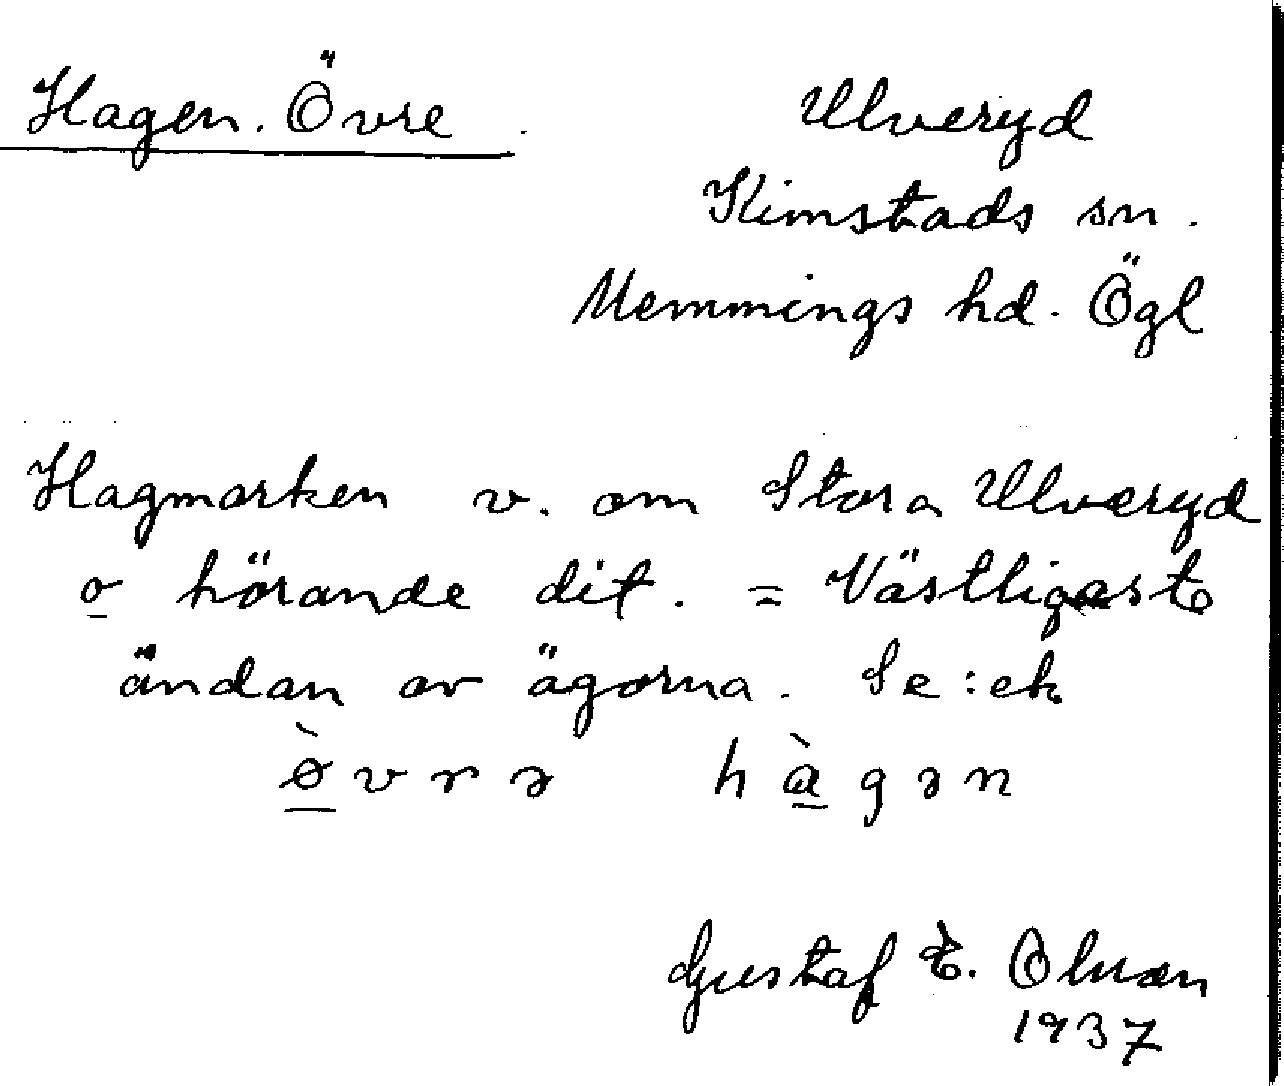 Hagen. Övre.
Ulveryd
Kimstads sn.
Memmings hd. Ögl
Hagmarken v. om Stora Ulveryd
o hörande dit. = Västligaste
ändan av ägorna. Se: ek.
ø̀vrə hàgən
Gustaf E. Olsson
1937